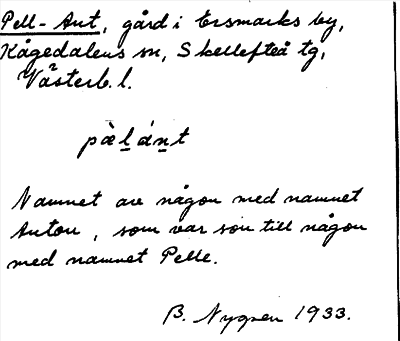 Pell-Ant, gård i Ersmarks by,
Kågedalens sn, Skellefteå tg,
Västerb. l.
pæ̀l̲án̲t
Namnet av någon med namnet
Anton, som var son till någon
med namnet Pelle.
B. Nygren 1933.